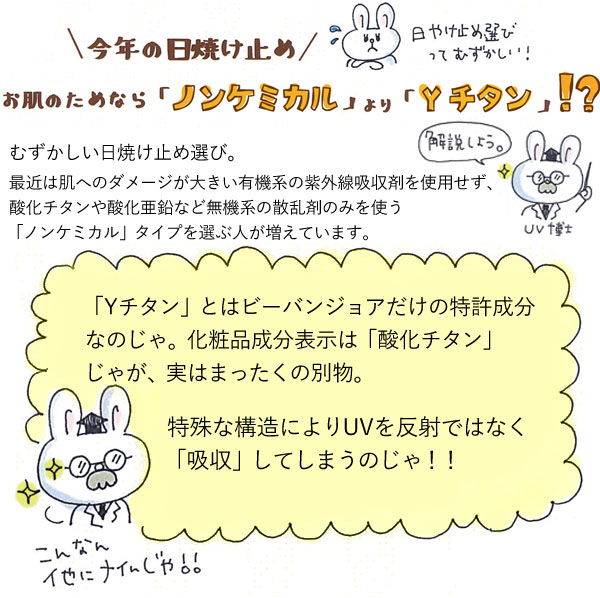 \今年の日焼け止め/
日やけ止め選び
ってむずかしい!
お肌のためなら「ノンケミカル」より「Yチタン」!?
むずかしい日焼け止め選び。
最近は肌へのダメージが大きい有機系の紫外線吸収剤を使用せず、
酸化チタンや酸化亜鉛など無機系の散乱剤のみを使う
「ノンケミカル」タイプを選ぶ人が増えています。
解説しよう。
UV博士
「Yチタン」とはビーバンジョアだけの特許成分
なのじゃ。化粧品成分表示は「酸化チタン」
じゃが、実はまったくの別物。
特殊な構造によりUVを反射ではなく
「吸収」してしまうのじゃ!!
こんなん
他にナイんじゃ!!